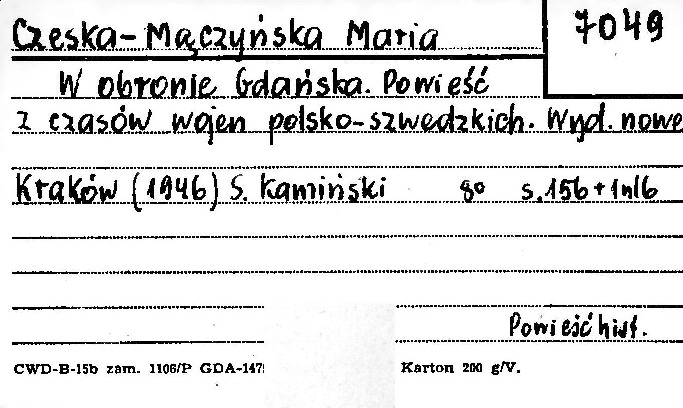 7049
Czeska-Mączyńska Maria
W obronie Gdańska. Powieść
z czasów wojen polsko-szwedzkich. Wyd. nowe
Kraków (1946) S. Kamiński 8° s. 156 + 1 nlb
Powieść hist.
CWD-B-15b zam. 1106/P GDA-147 Karton 200 g/V.